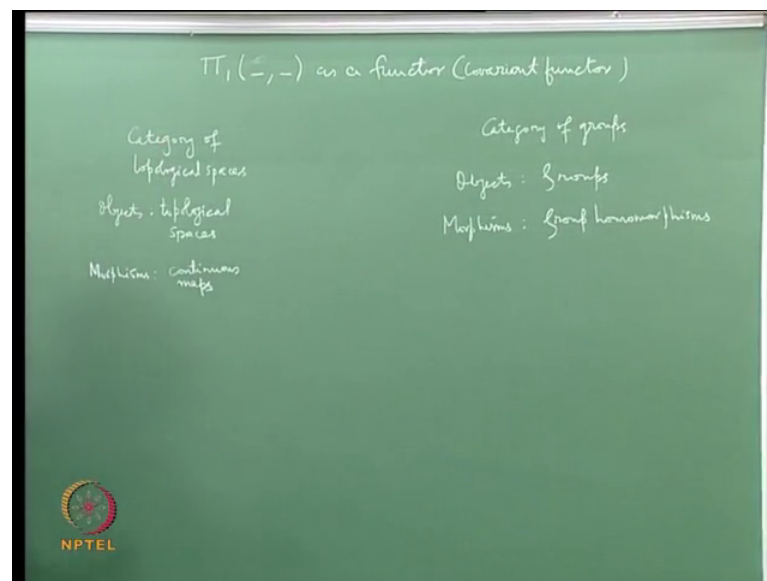 Π₁(–, –) as a functor (Covariant functor)
Category of
topological spaces
Objects : topological
spaces
Morphisms : continuous
maps
Category of groups
Objects : Groups
Morphisms : Group homomorphisms
NPTEL